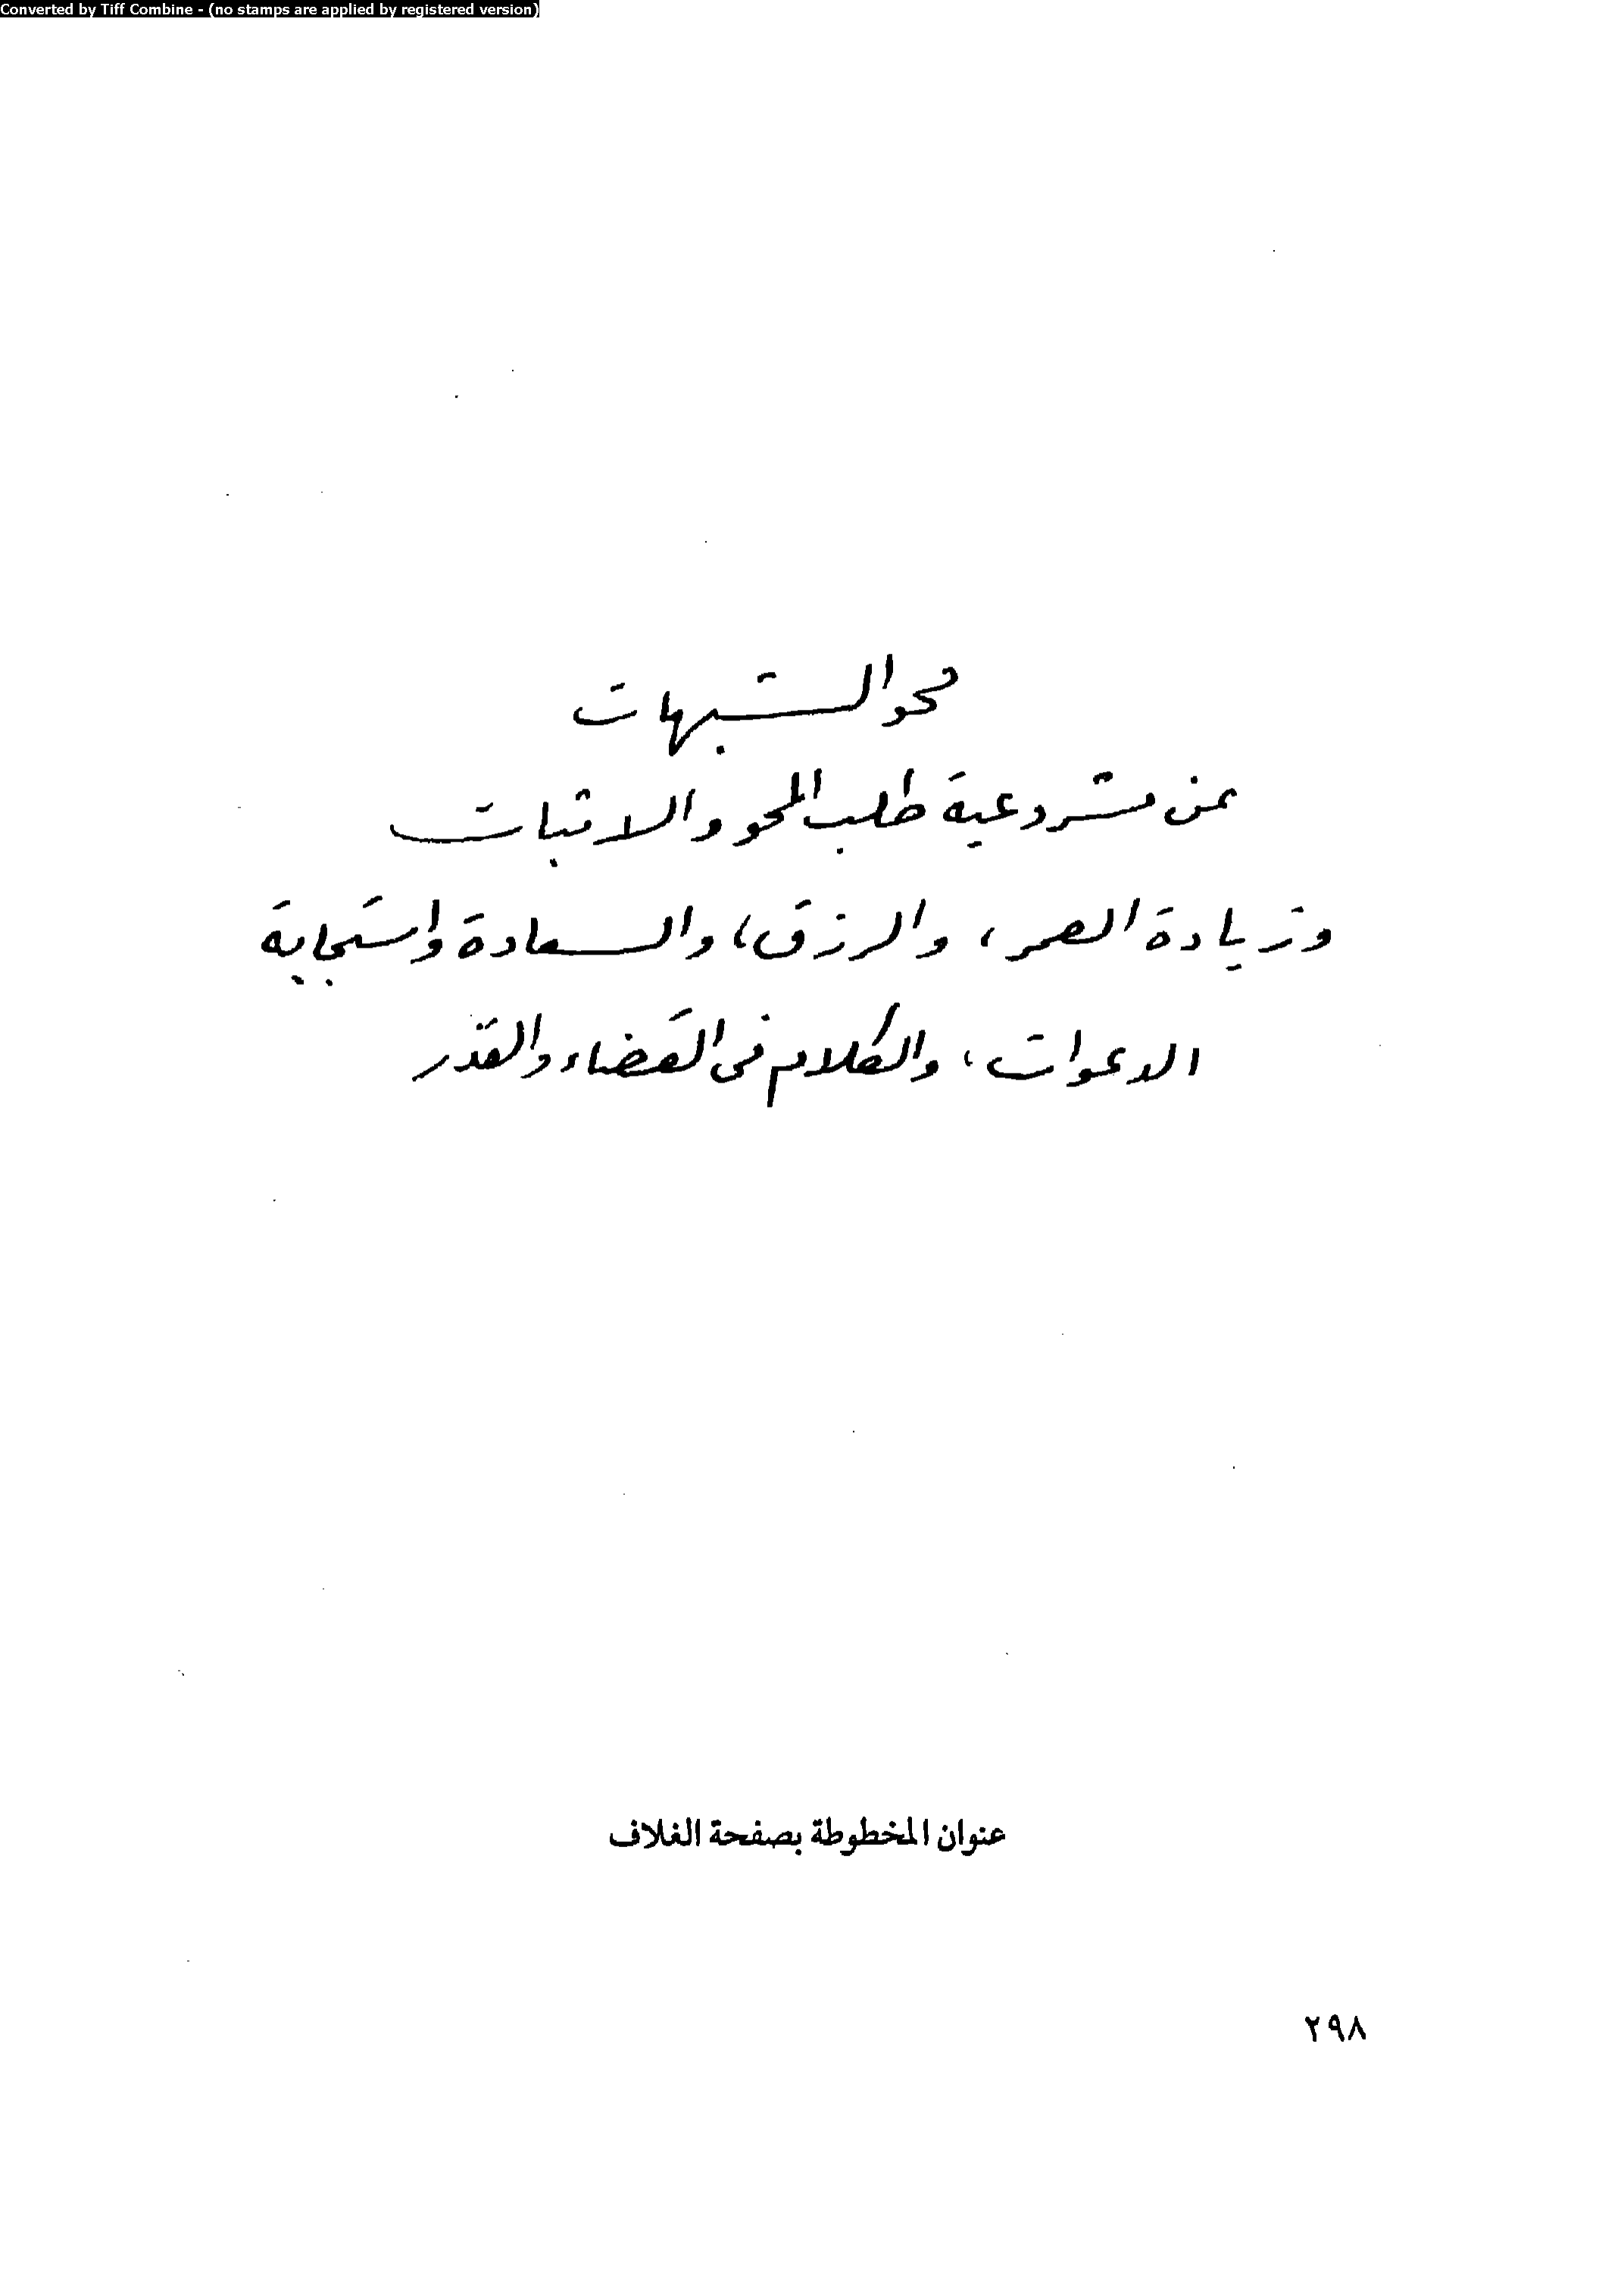 Converted by Tiff Combine - (no stamps are applied by registered version)
محو الشبهات
عن مشروعية طلب المحو والاثبات
وزيادة العمر، والرزق، والسعادة واستجابة
الدعوات، والكلام فى القضاء والقدر
عنوان المخطوطة بصفحة الغلاف
٢٩٨